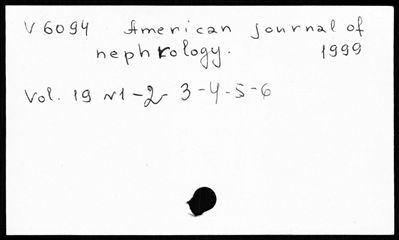 V 6094 American journal of
nephrology. 1999
Vol. 19 N1-2 3-4-5-6